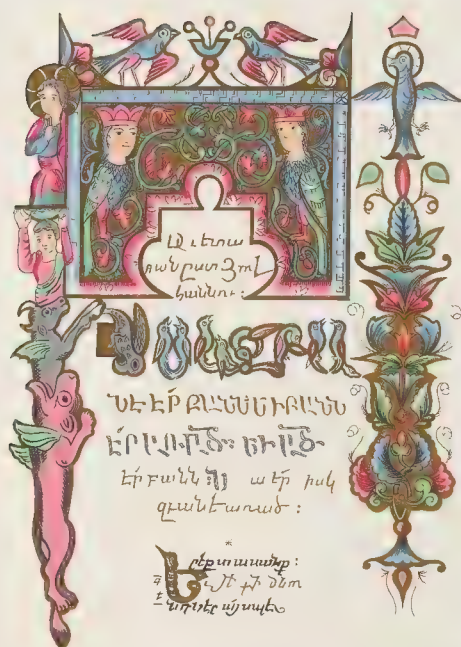 Աւետա
րան ըստ Յով
հաննու:
Ի ՍԿԶԲԱ
ՆԷ ԷՐ ԲԱՆՆ ԵՒ ԲԱՆՆ
ԷՐ ԱՌ ԱԾ: ԵՒ ԱԾ
էր բանն: Նա էր իսկ
զբանէ առ ած:
այսպես